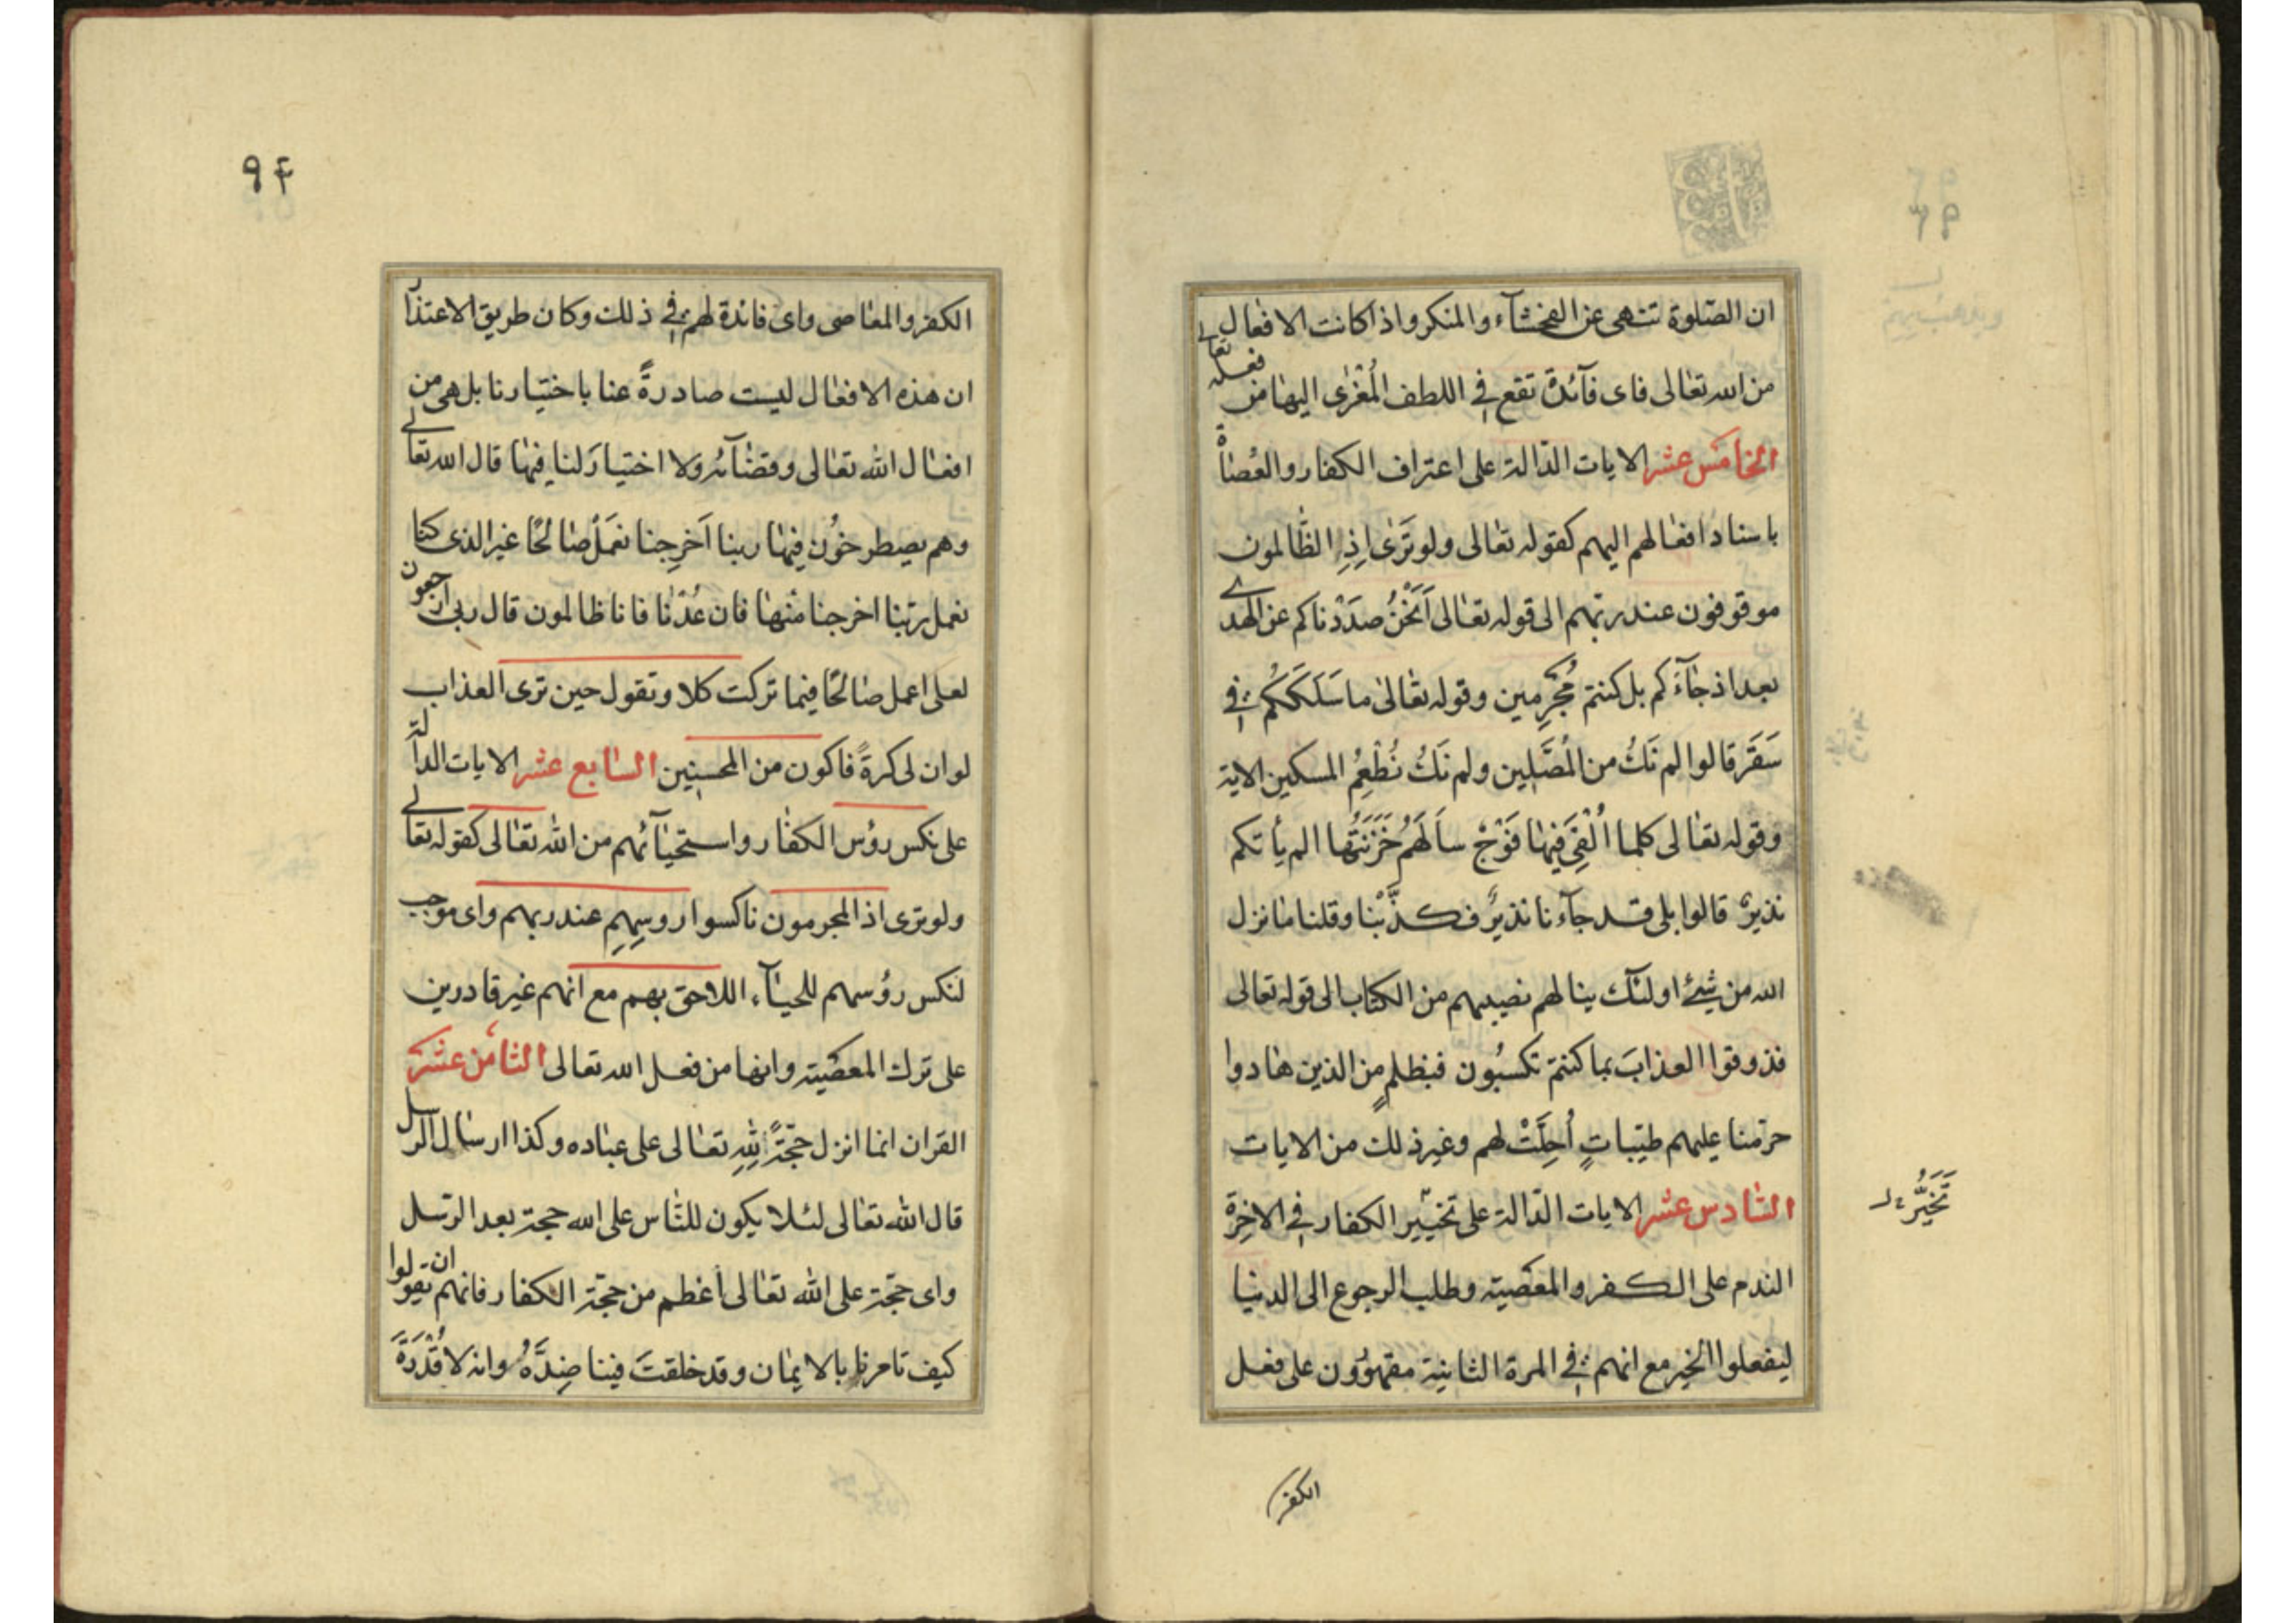 ان الصّلوة تنهى عن الفحشآء والمنكر واذا كانت الافعال
من الله تعالى فاى فآئدة تقع فى اللطف المُغْرى اليها من فعله تعالى
الخامس عشر الايات الدّالة على اعتراف الكفار والعُصاة
باسناد افعالهم اليهم كقوله تعالى ولو تَرَى اِذِ الظّالمون
موقوفون عند ربّهم الى قوله تعالى اَنَحْنُ صدَدْناكم عن الهدى
بعد اذ جآءَكم بل كنتم مُجْرِمين وقوله تعالى ما سَلَكَكُم فى
سَقَرَ قالوا لم نَكُ من المُصَّلين ولم نَكُ نُطْعِمُ المسكين الاية
وقوله تعالى كلما اُلْقِىَ فيها فَوْجٌ سأَلَهُم خَزَنَتُها الم يأتكم
نذيرٌ قالوا بلى قد جآءنا نذيرٌ فكذّبْنا وقلنا ما نزل
الله من شئ اولئك ينالهم نصيبهم من الكتاب الى قوله تعالى
فذوقوا العذابَ بما كنتم تكسبُون فبظلمٍ من الذين هادوا
حرّمنا عليهم طيّباتٍ اُحِلَّتْ لهم وغير ذلك من الايات
السّادس عشر الايات الدّالة على تخيّير الكفار فى الاخِرَة
تَخَيُّر
الندم على الكفر والمعصية وطلب الرجوع الى الدنيا
ليفعلوا الخير مع انهم فى المرة الثانية مقهوُرون على فعل
الكفر
٩۴
الكفر والمعاصى واى فائدة لهم فى ذلك وكان طريق الاعتذار
ان هذه الافعال ليست صادرةً عنا باختيارنا بل هى من
افعال الله تعالى وقضآئه ولا اختيارَ لنا فيها قال الله تعالى
وهم يصطرخُون فيها ربنا اَخرِجنا نعمَلْ صالحًا غير الذى كنا
نعمل ربّنا اخرجنا منها فان عُدْنا فانا ظالمون قال رب ارجعون
لعلى اعمل صالحًا فيما تركت كلا وتقول حين ترى العذاب
لو ان لى كرةً فاكون من المحسنين السّابع عشر الايات الدالة
على نكس رؤس الكفار واستحيآئهم من الله تعالى كقوله تعالى
ولو ترى اذ المجرمون ناكسوا روسِهِم عند ربهم واى موجب
لنكس رؤسهم للحيآء اللاحق بهم مع انهم غير قادرين
على ترك المعصية وانها من فعل الله تعالى الثامن عشر
القران انما انزل حجّةً لِلهِ تعالى على عباده وكذا ارسال الرسل
قال الله تعالى لئلا يكون للنّاس على الله حجة بعد الرّسل
واى حجّة على الله تعالى أعظم من حجّة الكفار فانهم ان تقولوا
كيف تامرنا بالايمان وقد خلقتَ فينا ضِدَّهُ وانه لا قُدْرَةَ